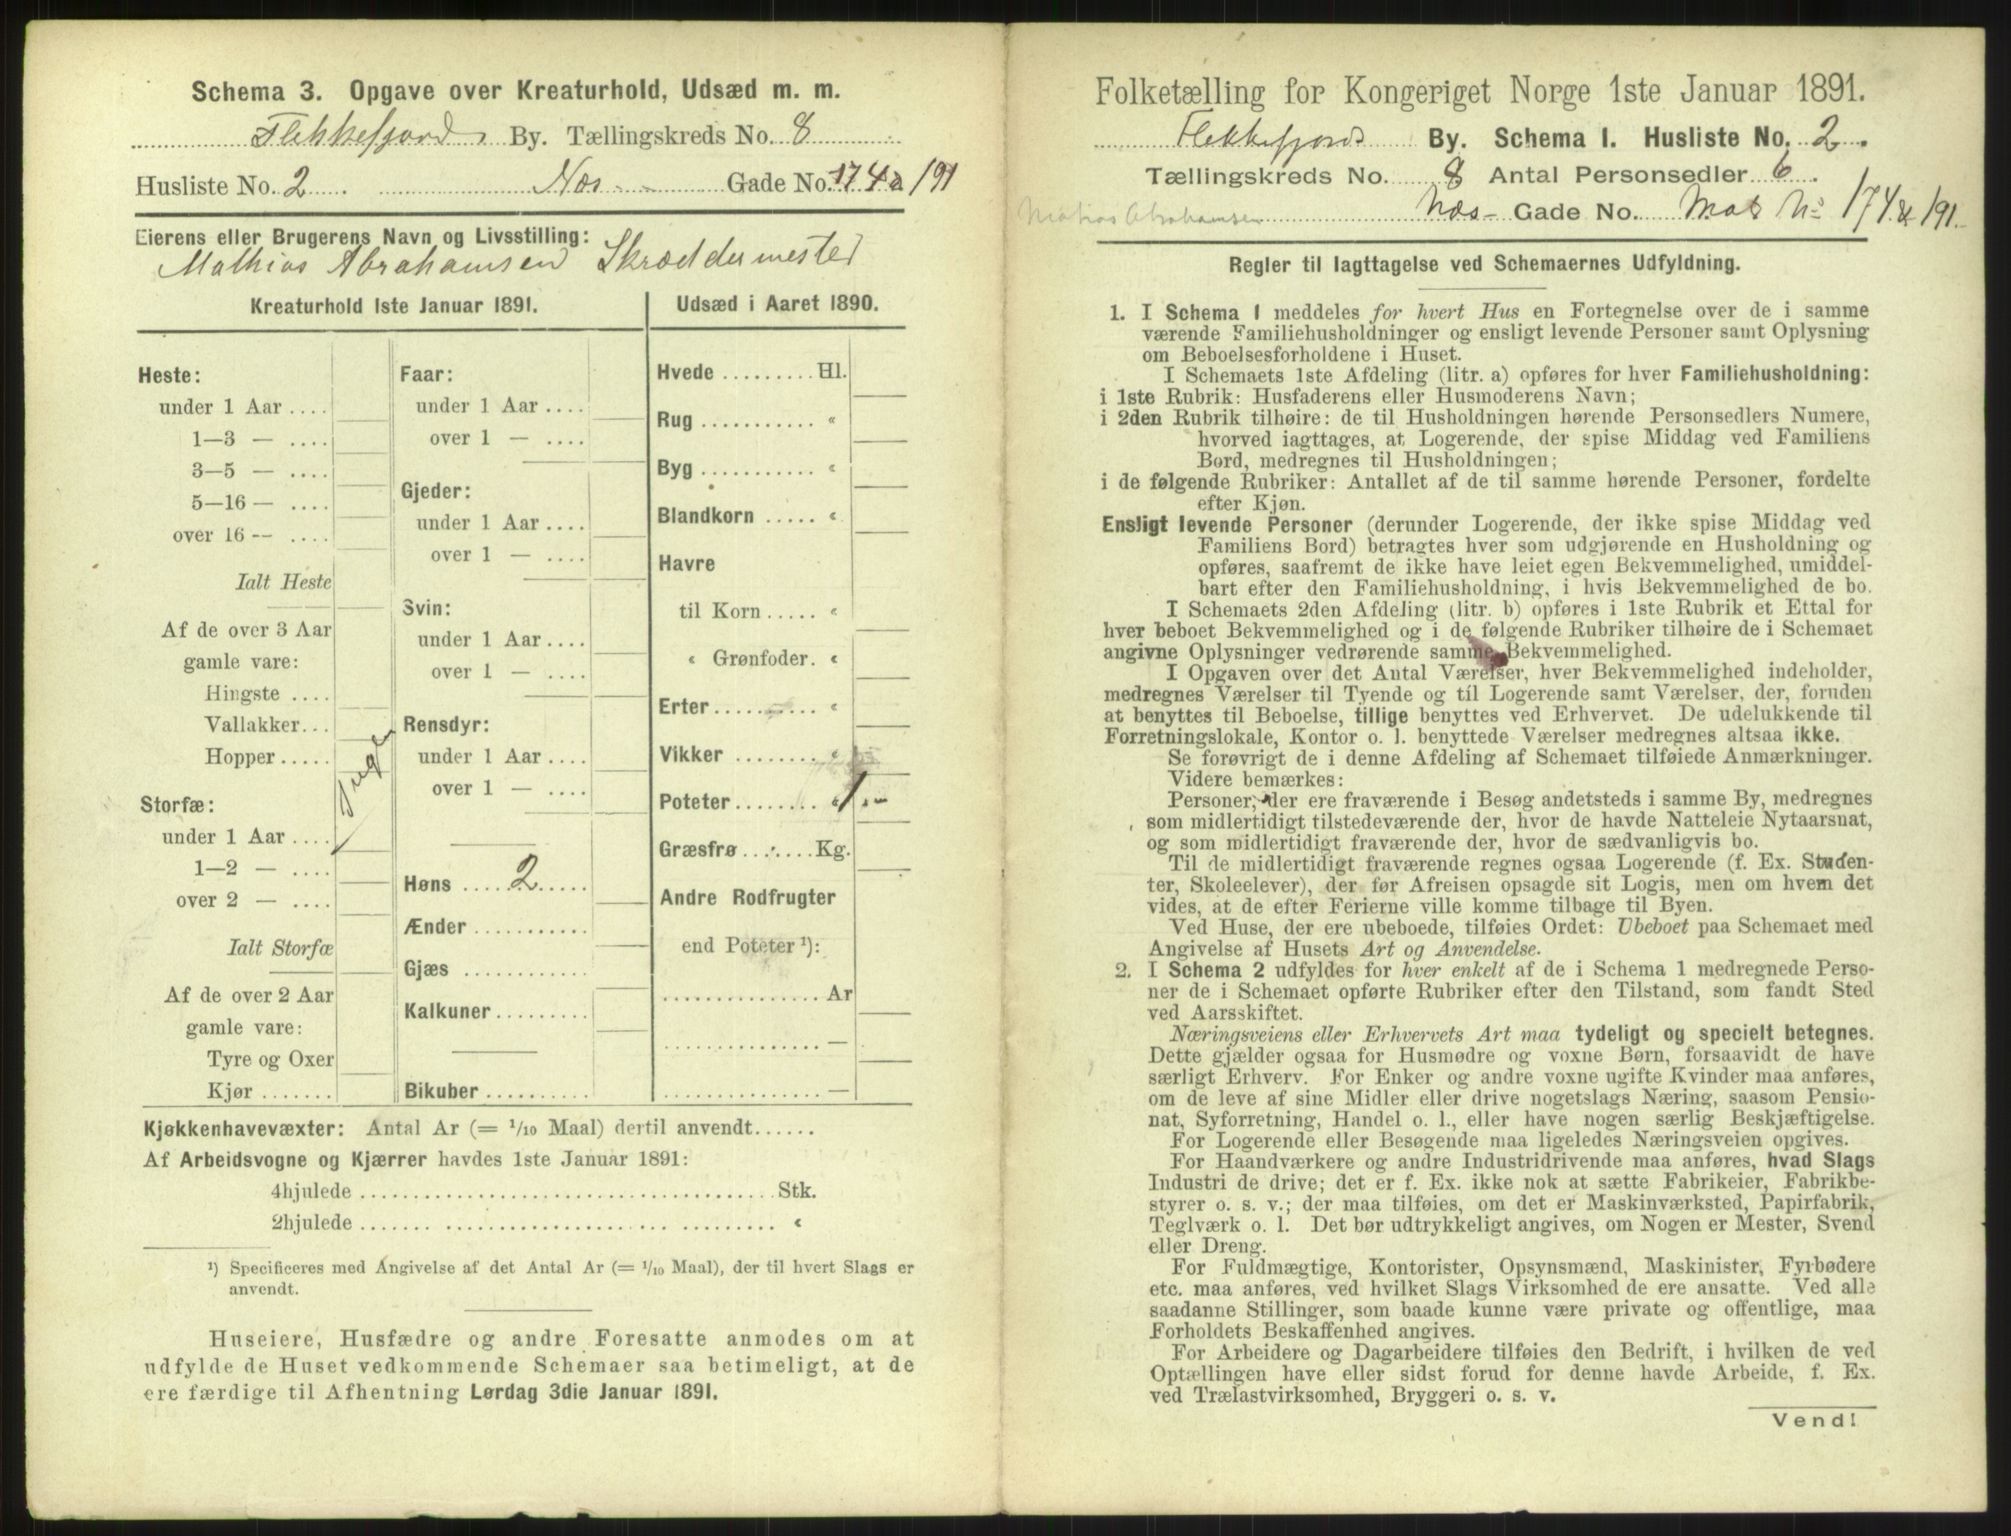 Schema 3. Opgave over Kreaturhold, Udsæd m. m.
Flekkefjords By. Tællingskreds No. 8
Husliste No. 2 Næs- Gade No. 174 & 191
Eierens eller Brugerens Navn og Livsstilling:
Mathias Abrahamsen Skræddermester
Kreaturhold 1ste Januar 1891.
Heste:
under 1 Aar ....
1—3 — ....
3—5 — ....
5—16 — ....
over 16 -- ....
Ialt Heste
Af de over 3 Aar
gamle vare:
Hingste ....
Vallakker...
Hopper.....
Storfæ:
under 1 Aar ....
1—2 — ....
over 2 — ....
Ialt Storfæ
Af de over 2 Aar
gamle vare:
Tyre og Oxer
Kjør .......
Ingen
Faar:
under 1 Aar ....
over 1 — ....
Gjeder:
under 1 Aar ....
over 1 — ....
Svin:
under 1 Aar ....
over 1 — ....
Rensdyr:
under 1 Aar ....
over 1 — ....
Høns .... 2 .....
Ænder ...........
Gjæs ............
Kalkuner.........
Bikuber ..........
Udsæd i Aaret 1890.
Hvede ......... Hl.
Rug ........... «
Byg ........... «
Blandkorn ..... «
Havre
til Korn ..... «
« Grønfoder. «
Erter.......... «
Vikker ........ «
Poteter........ « 1 -
Græsfrø ....... Kg.
Andre Rodfrugter
end Poteter ¹):
............... Ar
............... —
............... —
Kjøkkenhavevæxter: Antal Ar (= 1/10 Maal) dertil anvendt......
Af Arbeidsvogne og Kjærrer havdes 1ste Januar 1891:
4hjulede ........................................ Stk.
2hjulede ........................................ «
¹) Specificeres med Angivelse af det Antal Ar (= 1/10 Maal), der til hvert Slags er
anvendt.
Huseiere, Husfædre og andre Foresatte anmodes om at
udfylde de Huset vedkommende Schemaer saa betimeligt, at de
ere færdige til Afhentning Lørdag 3die Januar 1891.
Folketælling for Kongeriget Norge 1ste Januar 1891.
Flekkefjords By. Schema I. Husliste No. 2.
Tællingskreds No. 8 Antal Personsedler 6.
Matias Abrahamsen Næs- Gade No. Mat No 174 & 191.
Regler til Iagttagelse ved Schemaernes Udfyldning.
1. I Schema 1 meddeles for hvert Hus en Fortegnelse over de i samme
værende Familiehusholdninger og ensligt levende Personer samt Oplysning
om Beboelsesforholdene i Huset.
I Schemaets 1ste Afdeling (litr. a) opføres for hver Familiehusholdning:
i 1ste Rubrik: Husfaderens eller Husmoderens Navn;
i 2den Rubrik tilhøire: de til Husholdningen hørende Personsedlers Numere,
hvorved iagttages, at Logerende, der spise Middag ved Familiens
Bord, medregnes til Husholdningen;
i de følgende Rubriker: Antallet af de til samme hørende Personer, fordelte
efter Kjøn.
Ensligt levende Personer (derunder Logerende, der ikke spise Middag ved
Familiens Bord) betragtes hver som udgjørende en Husholdning og
opføres, saafremt de ikke have leiet egen Bekvemmelighed, umiddel-
bart efter den Familiehusholdning, i hvis Bekvemmelighed de bo.
I Schemaets 2den Afdeling (litr. b) opføres i 1ste Rubrik et Ettal for
hver beboet Bekvemmelighed og i de følgende Rubriker tilhøire de i Schemaet
angivne Oplysninger vedrørende samme Bekvemmelighed.
I Opgaven over det Antal Værelser, hver Bekvemmelighed indeholder,
medregnes Værelser til Tyende og til Logerende samt Værelser, der, foruden
at benyttes til Beboelse, tillige benyttes ved Erhvervet. De udelukkende til
Forretningslokale, Kontor o. l. benyttede Værelser medregnes altsaa ikke.
Se forøvrigt de i denne Afdeling af Schemaet tilføiede Anmærkninger.
Videre bemærkes:
Personer, der ere fraværende i Besøg andetsteds i samme By, medregnes
som midlertidigt tilstedeværende der, hvor de havde Natteleie Nytaarsnat,
og som midlertidigt fraværende der, hvor de sædvanligvis bo.
Til de midlertidigt fraværende regnes ogsaa Logerende (f. Ex. Studen-
ter, Skoleelever), der før Afreisen opsagde sit Logis, men om hvem det
vides, at de efter Ferierne ville komme tilbage til Byen.
Ved Huse, der ere ubeboede, tilføies Ordet: Ubeboet paa Schemaet med
Angivelse af Husets Art og Anvendelse.
2. I Schema 2 udfyldes for hver enkelt af de i Schema 1 medregnede Perso-
ner de i Schemaet opførte Rubriker efter den Tilstand, som fandt Sted
ved Aarsskiftet.
Næringsveiens eller Erhvervets Art maa tydeligt og specielt betegnes.
Dette gjælder ogsaa for Husmødre og voxne Børn, forsaavidt de have
særligt Erhverv. For Enker og andre voxne ugifte Kvinder maa anføres,
om de leve af sine Midler eller drive nogetslags Næring, saasom Pensio-
nat, Syforretning, Handel o. l., eller have nogen særlig Beskjæftigelse.
For Logerende eller Besøgende maa ligeledes Næringsveien opgives.
For Haandværkere og andre Industridrivende maa anføres, hvad Slags
Industri de drive; det er f. Ex. ikke nok at sætte Fabrikeier, Fabrikbe-
styrer o. s. v.; der maa tilføies, om det er Maskinværksted, Papirfabrik,
Teglværk o. l. Det bør udtrykkeligt angives, om Nogen er Mester, Svend
eller Dreng.
For Fuldmægtige, Kontorister, Opsynsmænd, Maskinister, Fyrbødere
etc. maa anføres, ved hvilket Slags Virksomhed de ere ansatte. Ved alle
saadanne Stillinger, som baade kunne være private og offentlige, maa
Forholdets Beskaffenhed angives.
For Arbeidere og Dagarbeidere tilføies den Bedrift, i hvilken de ved
Optællingen have eller sidst forud for denne havde Arbeide, f. Ex.
ved Trælastvirksomhed, Bryggeri o. s. v.
Vend!